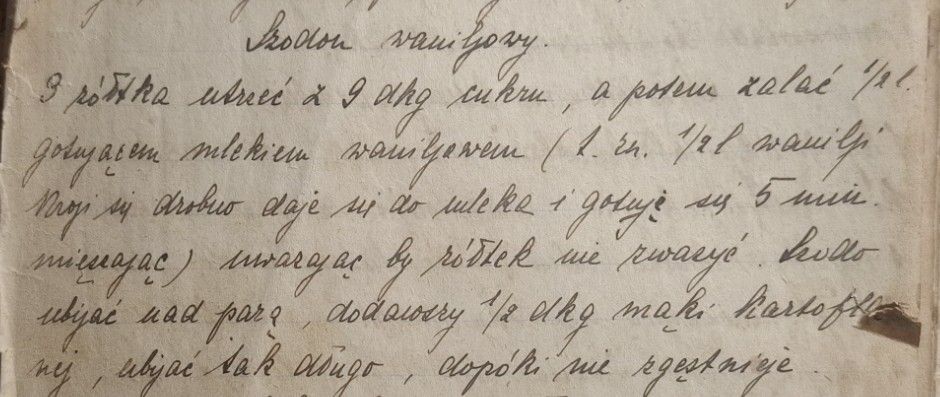 Szodon waniljowy.
3 żółtka utrzeć z 9 dkg cukru, a potem zalać 1/2 l.
gotującem mlekiem waniljowem (t. zn. 1/2 l wanilji
kroji się drobno daje się do mleka i gotuję się 5 min.
mięszając) uważając by żółtek nie zważyć. Szodo
ubijać nad parą, dodawszy 1/2 dkg mąki kartofla
nej, ubijać tak długo, dopóki nie zgęstnieje.